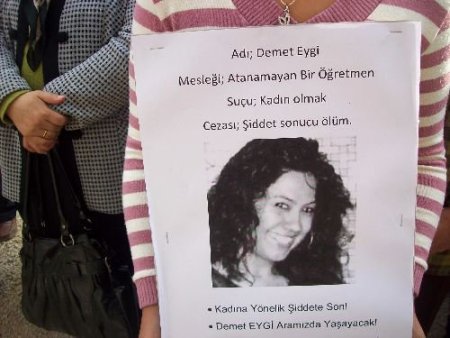 Adı; Demet Eygi
Mesleği; Atanamayan Bir Öğretmen
Suçu; Kadın olmak
Cezası; Şiddet sonucu ölüm.
• Kadına Yönelik Şiddete Son!
• Demet EYGİ Aramızda Yaşayacak!